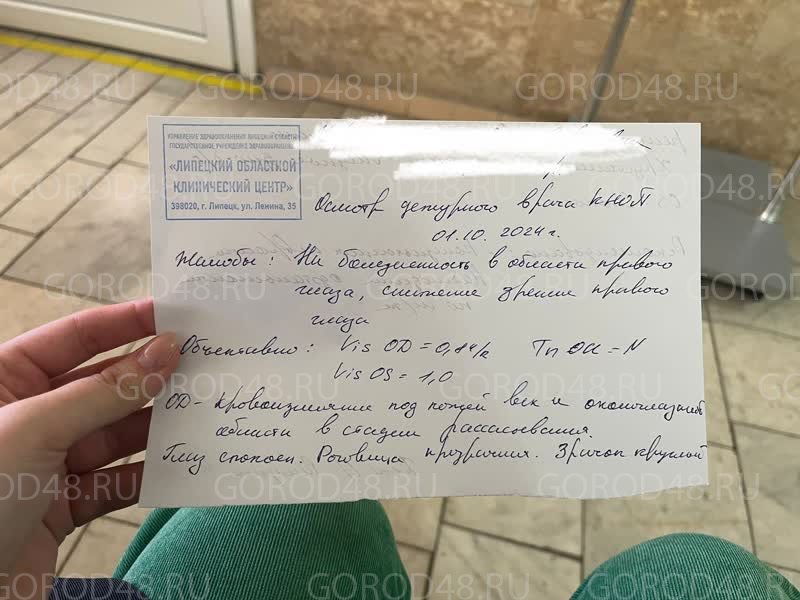 GOROD48.RU
УПРАВЛЕНИЕ ЗДРАВООХРАНЕНИЯ ЛИПЕЦКОЙ ОБЛАСТИ
ГОСУДАРСТВЕННОЕ УЧРЕЖДЕНИЕ ЗДРАВООХРАНЕНИЯ
«ЛИПЕЦКИЙ ОБЛАСТНОЙ
КЛИНИЧЕСКИЙ ЦЕНТР»
398020, г. Липецк, ул. Ленина, 35
Осмотр дежурного врача
01.10.2024г.
Жалобы: На болезненность в области правого
глаза, снижение зрения правого
глаза
Объективно: Vis OD = 0,8 = N
Vis OS = 1,0
OD - кровоизлияние под кожей век и окологлазной
области в стадии рассасывания.
Глаз спокоен. Роговица прозрачная. Зрачок круглый